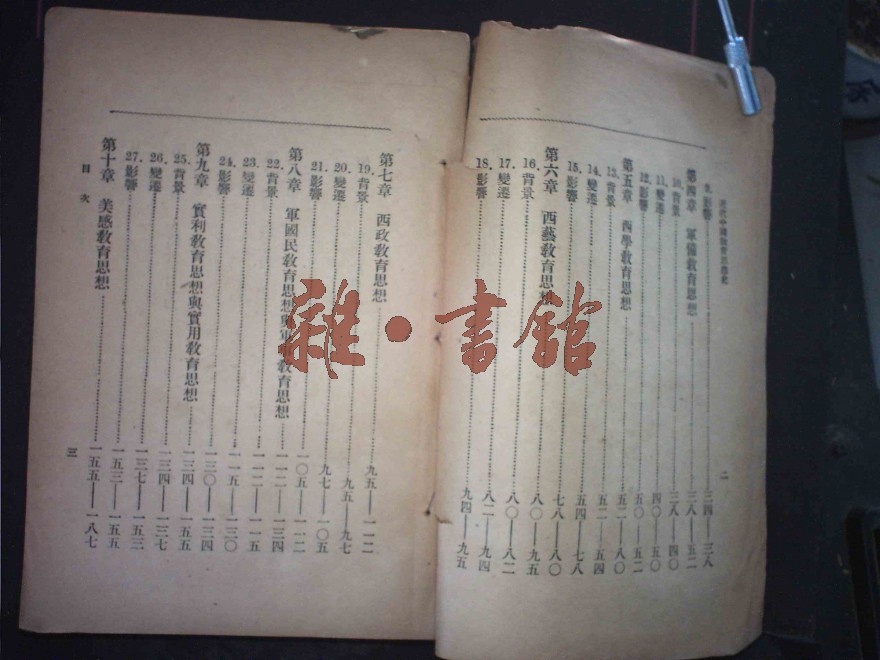 近代中國教育思想史
二
9. 影響……三四——三八
第四章 軍備教育思想……三八——五二
10. 背景……三八——四〇
11. 變遷……四〇——五〇
12. 影響……五〇——五二
第五章 西學教育思想……五二——八〇
13. 背景……五二——五四
14. 變遷……五四——七八
15. 影響……七八——八〇
第六章 西藝教育思想……八〇——九五
16. 背景……八〇——八二
17. 變遷……八二——九四
18. 影響……九四——九五
第七章 西政教育思想……九五——一一二
19. 背景……九五——九七
20. 變遷……九七——一〇五
21. 影響……一〇五——一一二
第八章 軍國民教育思想與軍事教育思想……一一二——一三四
22. 背景……一一二——一一五
23. 變遷……一一五——一三〇
24. 影響……一三〇——一三四
第九章 實利教育思想與實用教育思想……一三四——一五五
25. 背景……一三四——一三七
26. 變遷……一三七——一五三
27. 影響……一五三——一五五
第十章 美感教育思想……一五五——一八七
目次
三
雜·書館